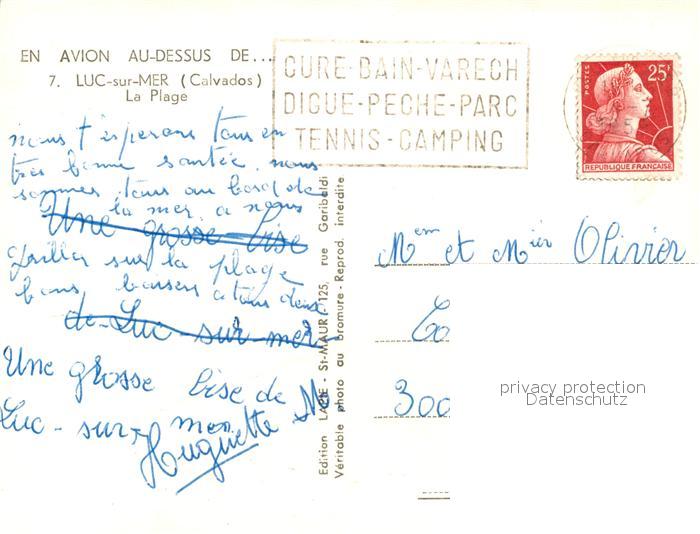 EN AVION AU-DESSUS DE...
7. LUC-sur-MER (Calvados)
La Plage
CURE-BAIN-VARECH
DIGUE-PECHE-PARC
TENNIS-CAMPING
POSTES
25F
REPUBLIQUE FRANÇAISE
nous t'esperons tous en
tres bonne santée. nous
sommes tous au bord de
la mer. a nous
Une grosse bise
sur la plage
bons baisers a tous deux
de Luc sur mer
Une grosse bise de
Luc-sur-mer
Huguette M
Edition LAPIE - St-MAUR - 125, rue Garibaldi
Véritable photo au bromure - Reprod. interdite
Mem et Mier Olivier
300
privacy protection
Datenschutz